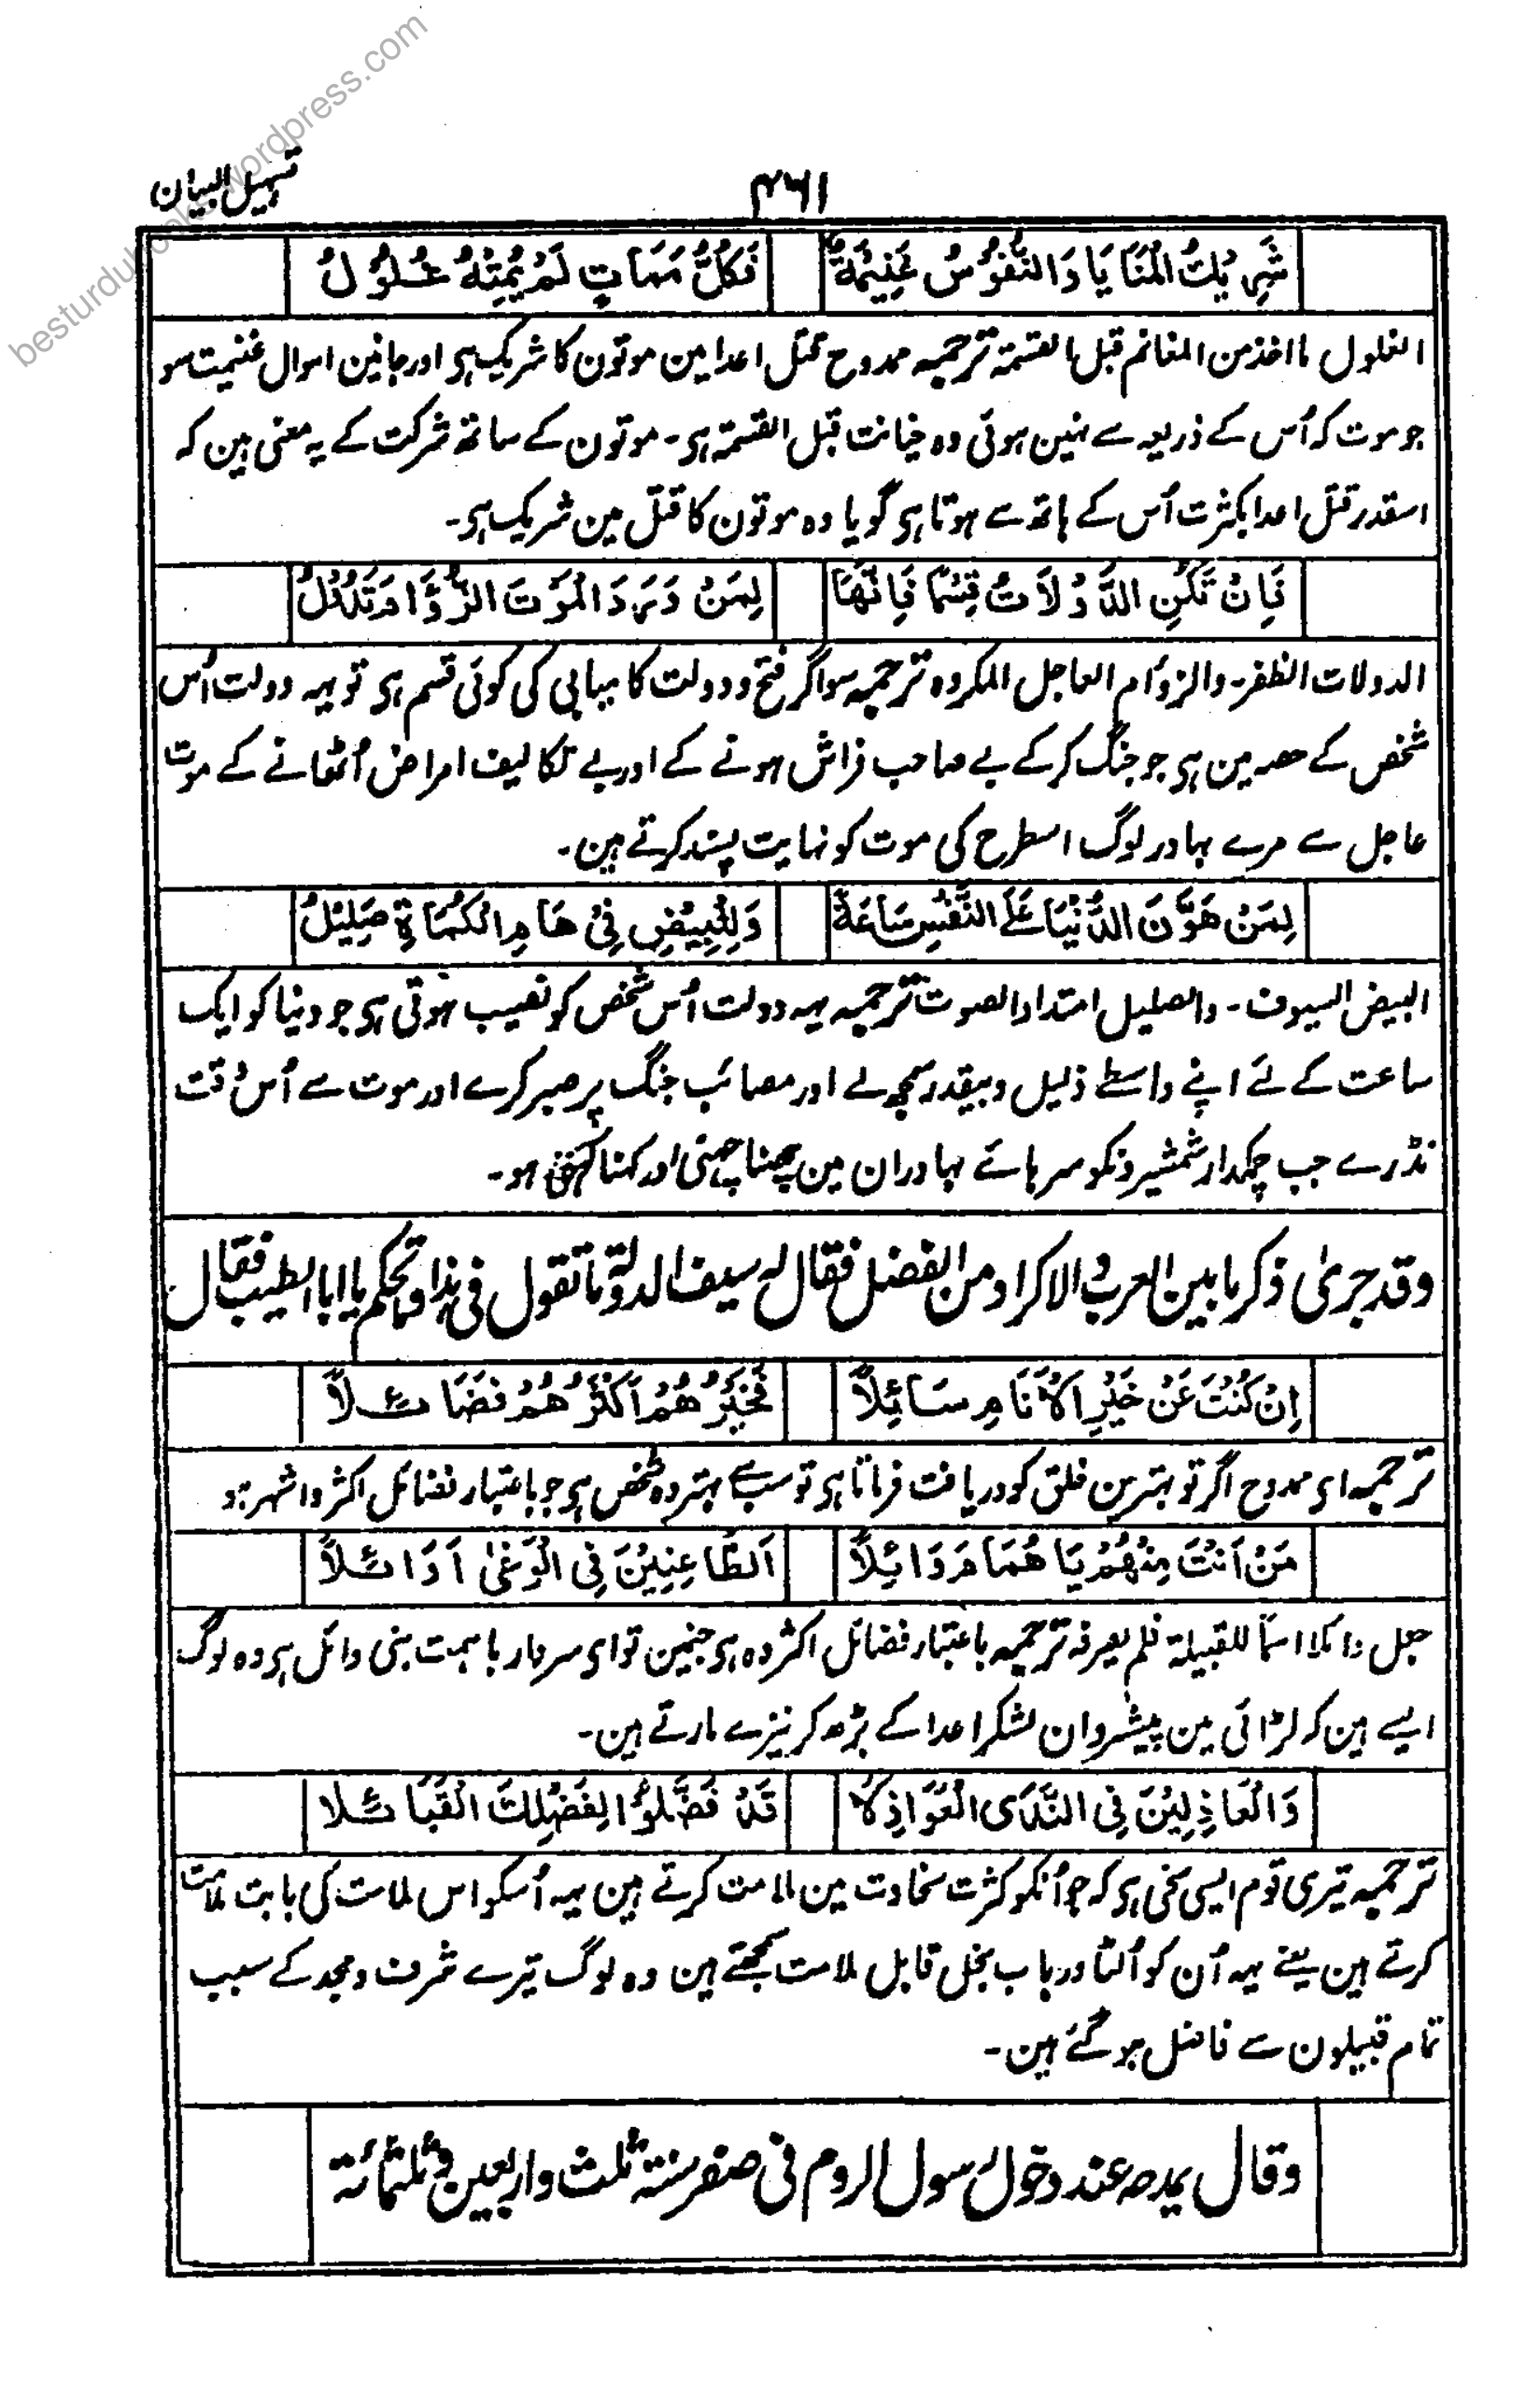 تسہیل البیان
۴۶۱
شَرِيْكُ الْمَنَايَا وَالنُّفُوْسُ غَنِيْمَةٌ فَكُلُّ مَمَاتٍ لَمْ يُمِتْهُ غُلُوْلُ
الغلول ما اخذ من المغانم قبل القسمۃ ترجمہ ممدوح قتل اعدا مین موتون کا شریک ہی اور جانین اموال غنیمت سو
جو موت کہ اُس کے ذریعہ سے نہین ہوئی وہ خیانت قبل القسمۃ ہی۔ موتون کے ساتھ شرکت کے یہ معنی ہین کہ
اسقدر قتل اعدا بکثرت اُس کے ہاتھ سے ہوتا ہی گویا وہ موتون کا قتل مین شریک ہی۔
فَاِنْ تَكُنِ الدَّوْلَاتُ قِسْمًا فَاِنَّهَا لِمَنْ وَرَدَ الْمَوْتَ الزُّؤَامَ تَدُوْلُ
الدولات الظفر۔ والزؤام العاجل المکروہ ترجمہ سو اگر فتح و دولت کامیابی کی کوئی قسم ہی تو یہہ دولت اُس
شخص کے حصہ مین ہی جو جنگ کرکے بے صاحب فراش ہونے کے اور بے تکالیف امراض اُٹھانے کے موت
عاجل سے مرے بہادر لوگ اسطرح کی موت کو نہایت پسند کرتے ہین۔
لِمَنْ هَوَّنَ الدُّنْيَا عَلَى النَّفْسِ سَاعَةً وَلِلْبِيْضِ فِيْ هَامِ الْكُمَاةِ صَلِيْلُ
البیض السیوف۔ والصلیل امتداد الصوت ترجمہ یہہ دولت اُس شخص کو نصیب ہوتی ہی جو دنیا کو ایک
ساعت کے لئے اپنے واسطے ذلیل و بیقدر سمجھ لے اور مصائب جنگ پر صبر کرے اور موت سے اُس وقت
نڈرے جب چمکدار شمشیرونکو سرہائے بہادران مین چھنا چھنی اور کھنا کھنی ہو۔
وقد جریٰ ذکر ما بین العرب و الاکراد من الفضل فقال لہ سیف الدولۃ ما تقول فی ہذا و تحکم یا ابا الطیب فقال
اِنْ كُنْتَ عَنْ خَيْرِ الْاَنَامِ سَائِلًا فَخَيْرُهُمْ اَكْثَرُهُمْ فَضَائِلًا
ترجمہ ای ممدوح اگر تو بہترین خلق کو دریافت فرماتا ہی تو سب سے بہتر وہ شخص ہی جو باعتبار فضائل اکثر و اشہر ہو
مَنْ اَنْتَ مِنْهُمْ يَا هُمَامَ وَائِلًا اَلطَّاعِنِيْنَ فِي الْوَغٰى اَوَائِلًا
جعل وائلا اسمًا للقبیلۃ فلم یعرفہ ترجمہ باعتبار فضائل اکثر وہ ہی جنمین تو ای سردار باہمت بنی وائل ہی وہ لوگ
ایسے ہین کہ لڑائی مین پیشروان لشکر اعدا کے بڑھ کر نیزے مارتے ہین۔
وَالْعَاذِلِيْنَ فِي النَّدَى الْعَوَاذِلَا قَدْ فَضَّلُوْا لِفَضْلِكَ الْقَبَائِلَا
ترجمہ تیری قوم ایسی سخی ہی کہ جو اُنکو کثرت سخاوت مین ملامت کرتے ہین یہہ اُسکو اس ملامت کی بابت ملامت
کرتے ہین یعنے یہہ اُن کو اُلٹا درباب بخل قابل ملامت سمجھتے ہین وہ لوگ تیرے شرف و مجد کے سبب
تمام قبیلون سے فاضل ہو گئے ہین۔
وقال یمدحہ عند دخول رسول الروم فی صفر سنۃ ثلث و اربعین و ثلثمائۃ
besturdubooks.wordpress.com